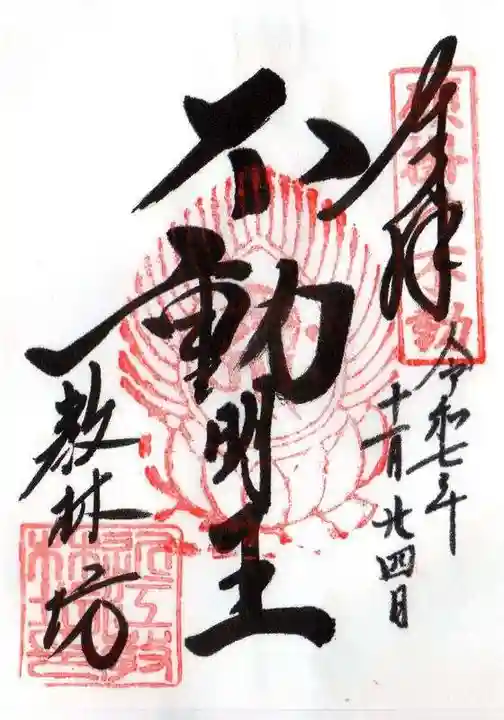 奉拝
願掛不動
令和七年
十一月廿四日
不動明王
教林坊